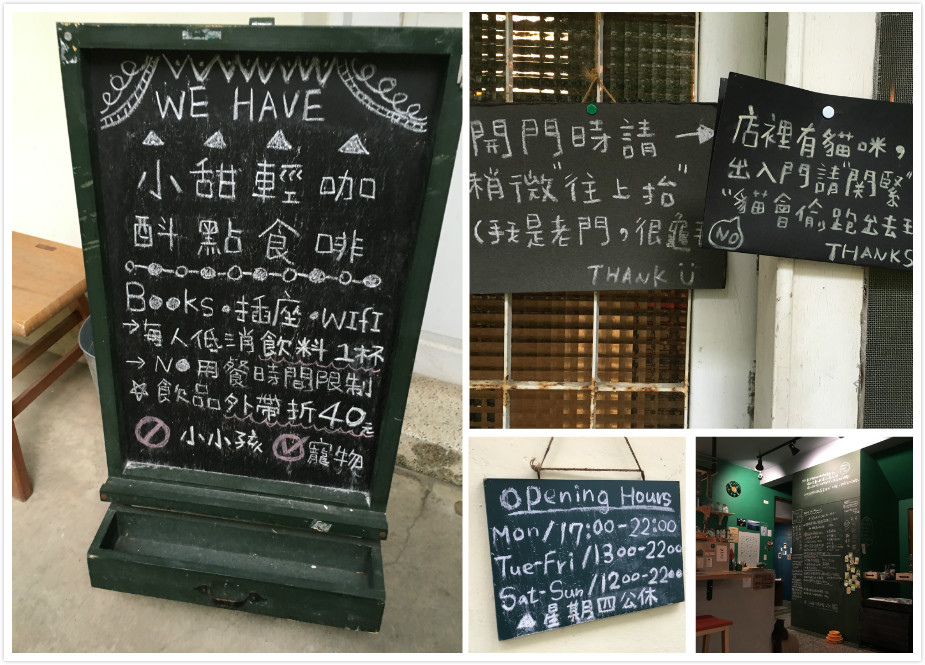 WE HAVE
小 甜 輕 咖
酌 點 食 啡
Books・插座・WIFI
→每人低消飲料1杯
→NO用餐時間限制
☆飲品外帶折40元
小小孩 寵物
開門時請 →
稍微"往上抬"
(我是老門,很龜
THANK Ü
店裡有貓咪,
出入門請"關緊"
"貓會偷跑出去玩
NO
THANKS
Opening Hours
Mon/17:00-22:00
Tue-Fri/13:00-22:00
Sat-Sun/12:00-22:00
▲星期四公休